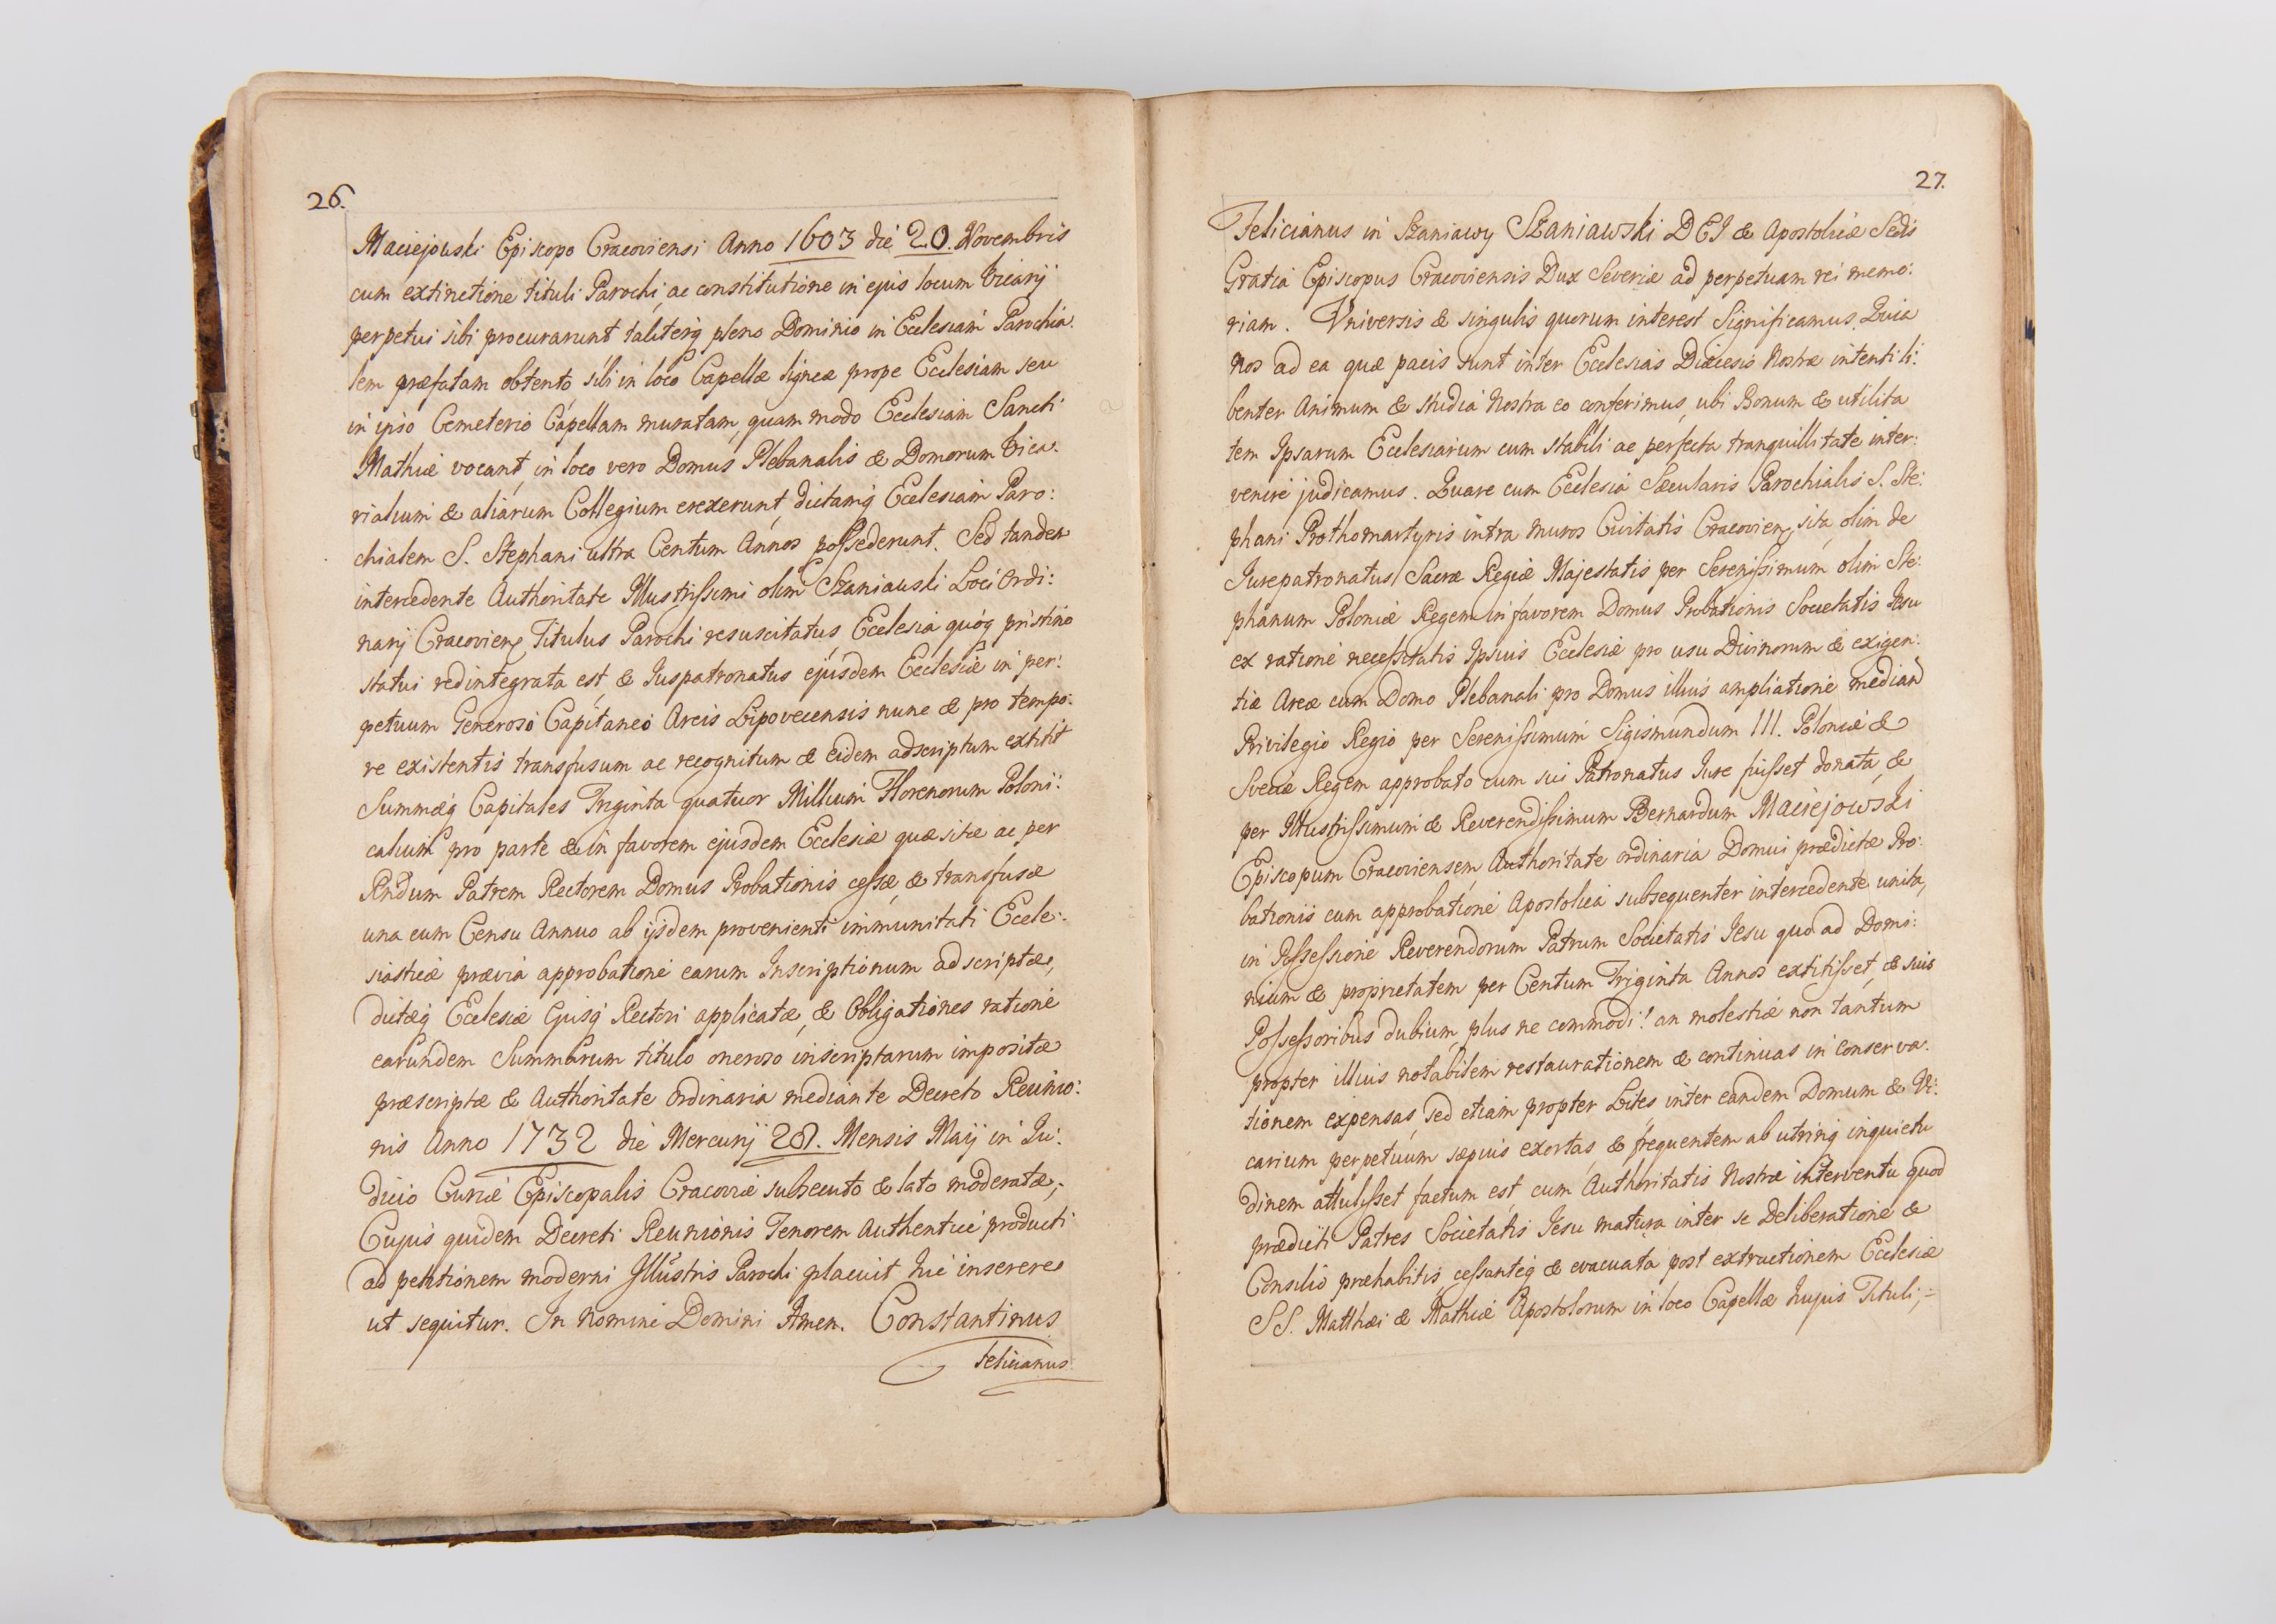 26.
Maciejowski Episcopo Cracoviensi Anno 1603 die 20. Novembris
cum extinctione tituli Parochi, ac constitutione in ejus locum Vicarij
perpetui sibi procurarunt taliterq pleno Dominio in Ecclesiam Parochia.
lem præfatam obtento, sibi in loco Capellæ ligneæ prope Ecclesiam seu
in ipso Cemeterio Capellam muratam, quam modo Ecclesiam Sancti
Mathiæ vocant, in loco vero Domus Plebanalis & Domorum Vica.
rialium & aliarum Collegium erexerunt, dictamq Ecclesiam Paro:
chialem S. Stephani ultra Centum Annos possederunt. Sed tandem
intercedente Authoritate Illustrissimi olim Szaniawski Loci Ordi:
narij Cracovien, Titulus Parochi resuscitatus, Ecclesia quóq pristino
statui redintegrata est, & Juspatronatus ejusdem Ecclesiæ in per:
petuum Generoso Capitaneo Arcis Lipovecensis nunc & pro tempo:
re existentis transfusum ac recognitum & eidem adscriptum extitit
Summæq Capitales Triginta quatuor Millium Florenorum Poloni:
calium pro parte & in favorem ejusdem Ecclesiæ quæsitæ ac per
Rndum Patrem Rectorem Domus Probationis cessæ, & transfusæ
una cum Censu Annuo ab ijsdem provenienti immunitati Eccle:
siasticæ prævia approbatione earum Inscriptionum adscriptæ,
dictæq Ecclesiæ Ejusq Rectori applicatæ, & Obligationes ratione
earundem Summarum titulo oneroso inscriptarum impositæ
præscriptæ & Authoritate Ordinaria mediante Decreto Reunio:
nis Anno 1732 die Mercurij 28. Mensis Maij in Ju:
dicio Curiæ Episcopalis Cracoviæ subsecuto & lato moderatæ,
Cujus quidem Decreti Reunionis Tenorem Authentice producti
ad petitionem moderni Illustris Parochi placuit hic inserere
ut sequitur. In Nomine Domini Amen. Constantinus
Felicianus
27.
Felicianus in Szaniawy Szaniawski DEI & Apostolicæ Sedis
Gratia Episcopus Cracoviensis Dux Severiæ ad perpetuam rei memo:
riam. Universis & singulis quorum interest Significamus. Quia
Nos ad ea quæ pacis sunt inter Ecclesias Diæcesis Nostræ intenti li:
benter Animum & studia Nostra eo conferimus, ubi Bonum & utilita
tem Ipsarum Ecclesiarum cum stabili ac perfecta tranquillitate inter:
venire judicamus. Quare cum Ecclesia Sæcularis Parochialis S. Ste:
phani Prothomartyris intra muros Civitatis Cracovien, sita, olim de
Jurepatronatus Sacræ Regiæ Majestatis per Serenissimum olim Ste:
phanum Poloniæ Regem in favorem Domus Probationis Societatis Jesu
ex ratione necessitatis Ipsius Ecclesiæ pro usu Divinorum & exigen:
tiæ Areæ cum Domo Plebanali pro Domus illius ampliatione median
Privilegio Regio per Serenissimum Sigismundum III. Poloniæ &
Sveciæ Regem approbato cum sui Patronatus Jure fuisset donata, &
per Illustrissimum & Reverendissimum Bernardum Maciejowski
Episcopum Cracoviensem, Authoritate ordinaria Domui prædictæ Pro:
bationis cum approbatione Apostolica subsequenter intercedente unita,
in Possessione Reverendorum Patrum Societatis Jesu quo ad Domi:
nium & proprietatem per Centum Triginta Annos extitisset, & suis
Possessoribus dubium, plus ne commodi! an molestiæ non tantum
propter illius notabilem restaurationem & continuas in conserva.
tionem expensas, sed etiam propter Lites inter eandem Domum & Vi:
carium perpetuum sæpius exortas, & frequentem ab utrinq inquietu
dinem attulisset factum est, cum Authoritatis Nostræ interventu quod
prædicti Patres Societatis Jesu matura inter se deliberatione &
Consilio præhabitis, cessanteq & evacuata post extructionem Ecclesiæ
SS. Matthæi & Mathiæ Apostolorum in loco Capellæ hujus Tituli,=